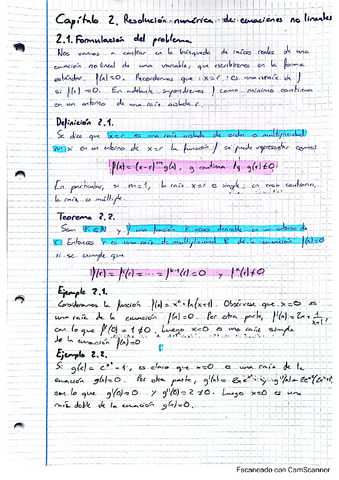 Capítulo 2. Resolución numérica de ecuaciones no lineales
2.1. Formulación del problema
Nos vamos a centrar en la búsqueda de raíces reales de una
ecuación no lineal de una variable, que escribiremos en la forma
estándar f(x)=0. Recordemos que x=r es una raíz de f
si f(r)=0. En adelante supondremos f como mínimo continua
en un entorno de una raíz aislada r.
Definición 2.1.
Se dice que x=r es una raíz aislada de orden o multiplicidad
m si en un entorno de x=r la función f se puede representar como
f(x)=(x-r)^m g(x), g continua y g(r)≠0
En particular, si m=1, la raíz x=r es simple; en caso contrario,
la raíz es múltiple.
Teorema 2.2.
Sean k∈N y f una función k veces derivable en un entorno de
r. Entonces r es una raíz de multiplicidad k de la ecuación f(x)=0
si se cumple que
f(r)=f'(r)=...=f^(k-1)(r)=0 y f^k(r)≠0
Ejemplo 2.1.
Consideramos la función f(x)=x²+ln(x+1). Obsérvese que x=0 es
una raíz de la ecuación f(x)=0. Por otra parte, f'(x)=2x+1/(x+1),
con lo que f'(0)=1≠0. Luego x=0 es una raíz simple
de la ecuación f(x)=0
Ejemplo 2.2.
Si g(x)=e^x²-1, es claro que x=0 es una raíz de la
ecuación g(x)=0. Por otra parte, g'(x)=2xe^x² y g''(x)=2e^x²(2x²+1),
con lo que g'(0)=0 y g''(0)=2≠0. Luego x=0 es una
raíz doble de la ecuación g(x)=0.
Escaneado con CamScanner